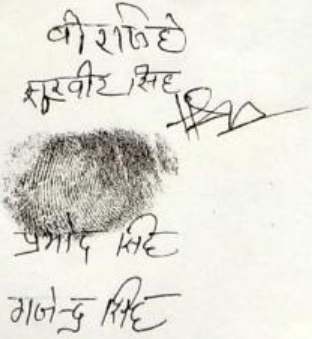 वीरसिंह
सूरवीर सिंह
प्रमोद सिंह
गजेन्द्र सिंह